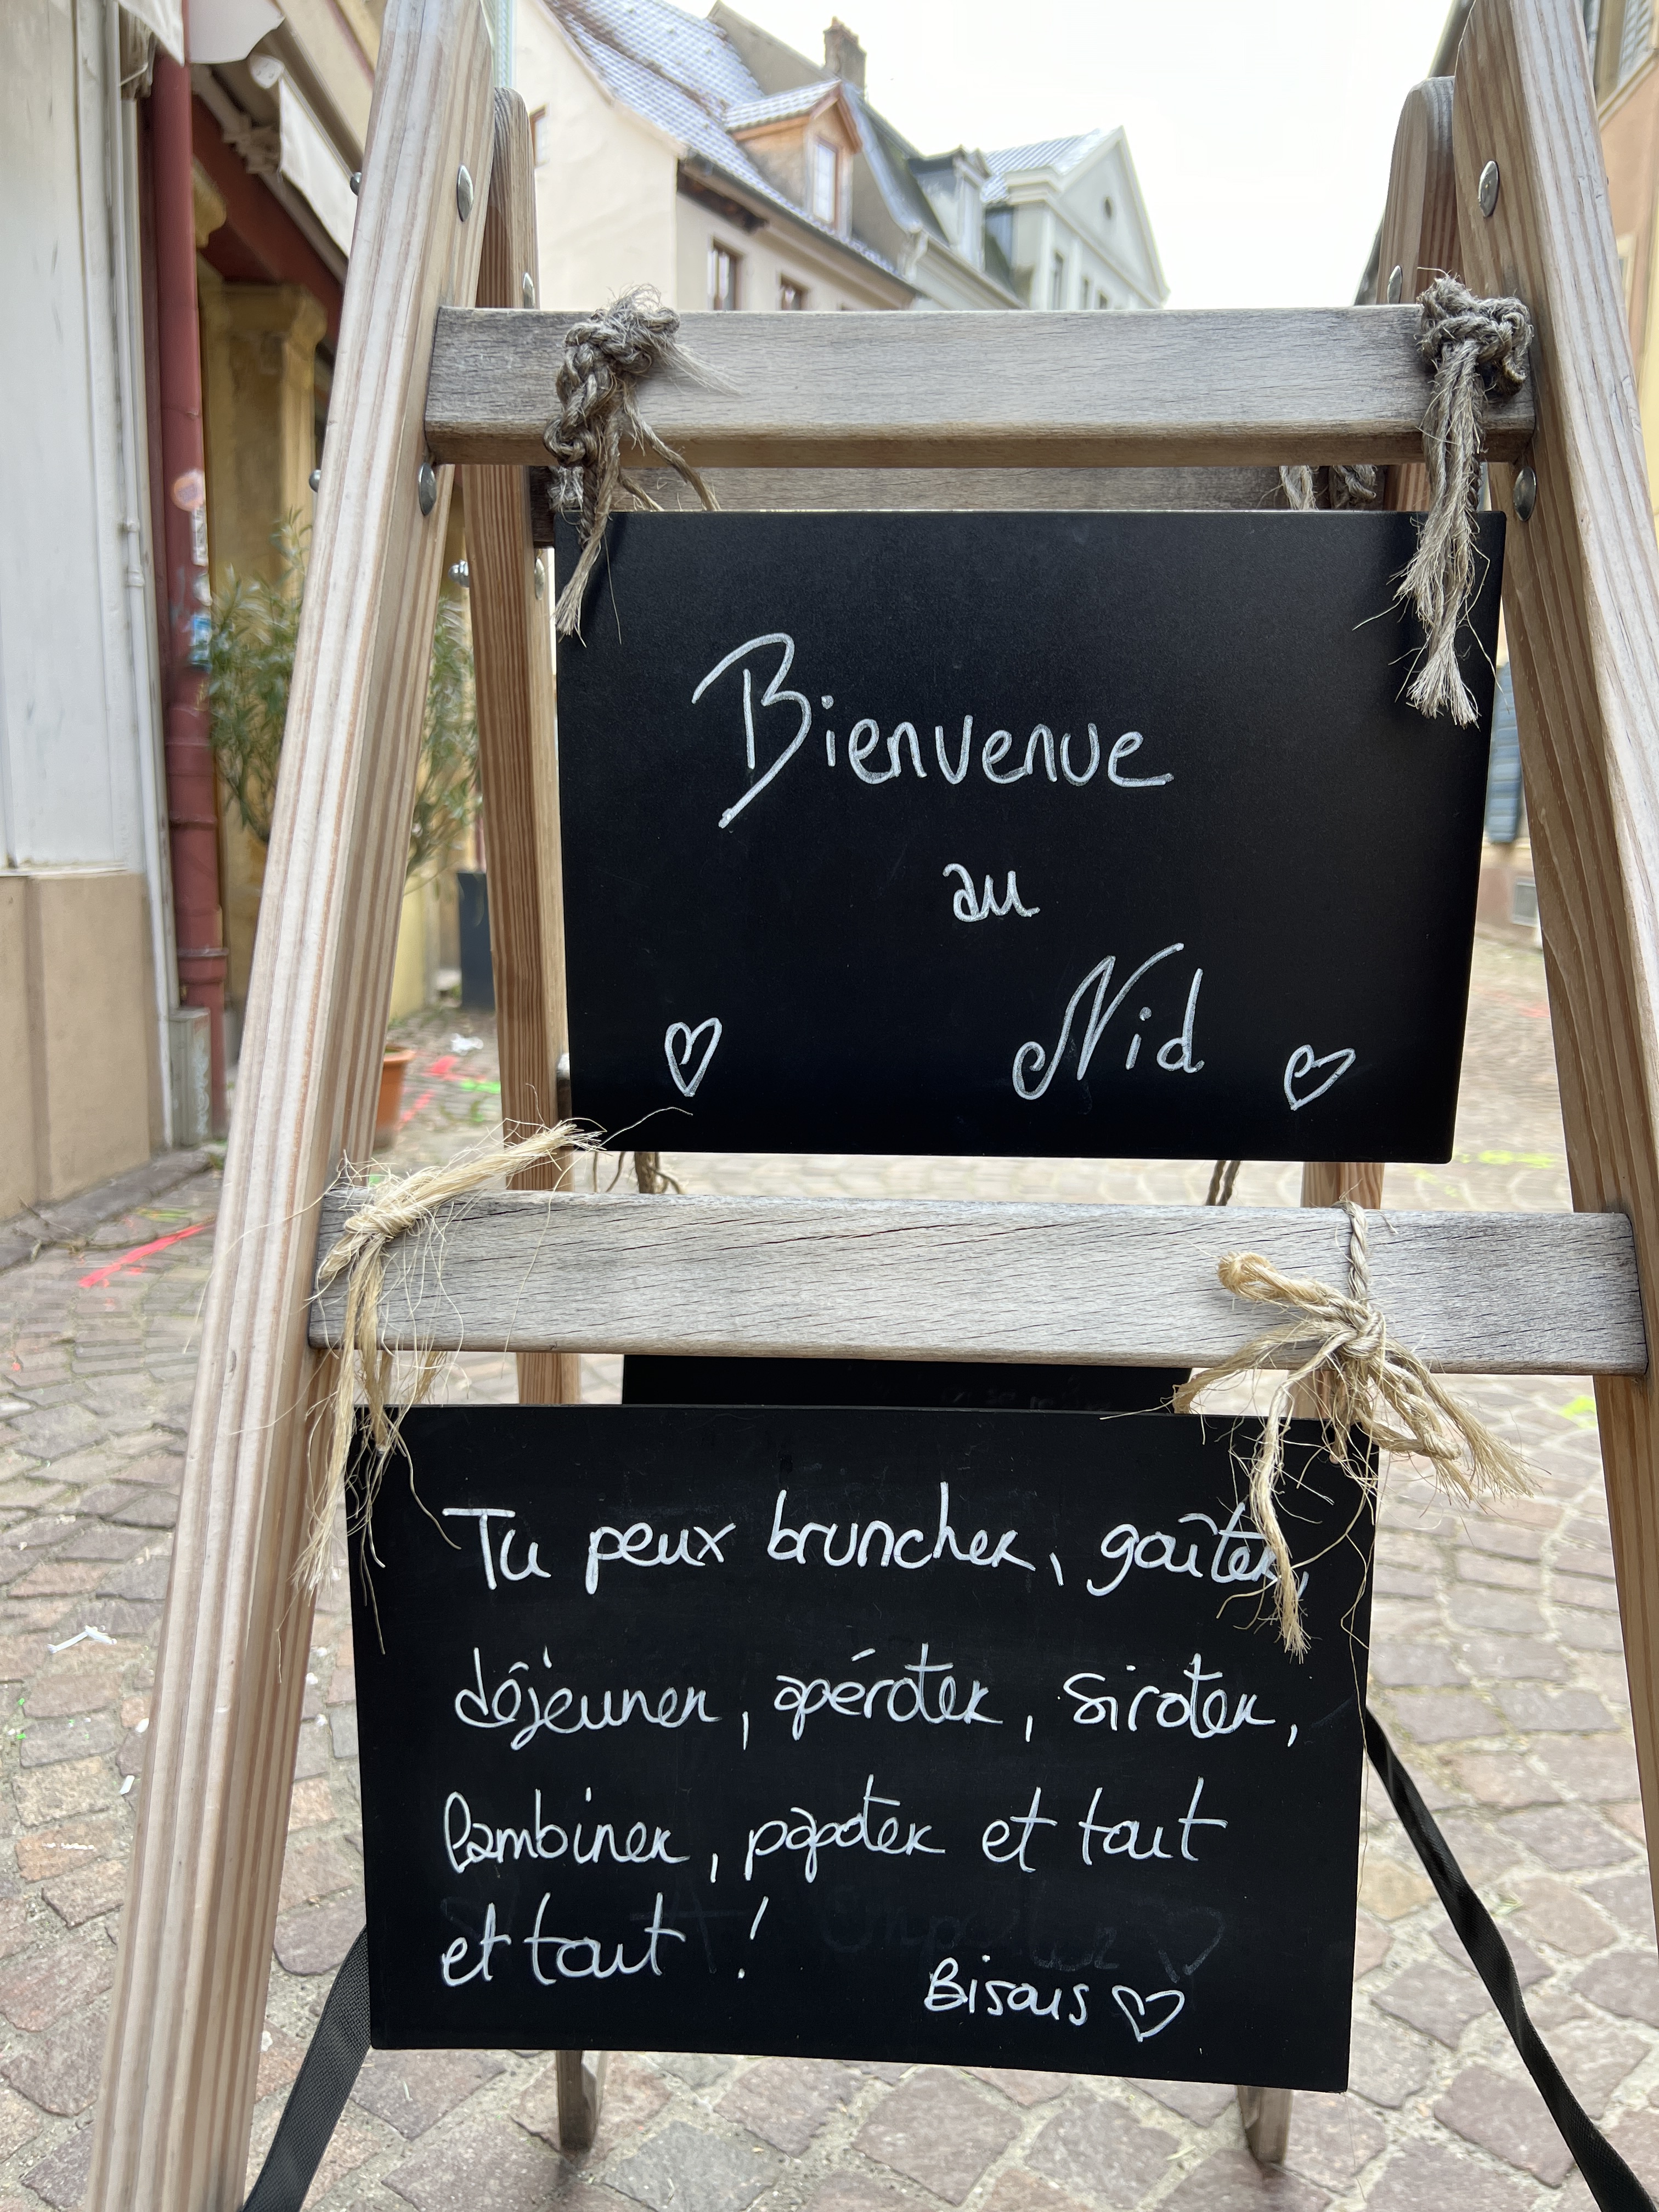 Bienvenue
au
Nid
Tu peux bruncher, goûter,
déjeuner, apéroter, siroter,
lambiner, papoter et tout
et tout !
Bisous